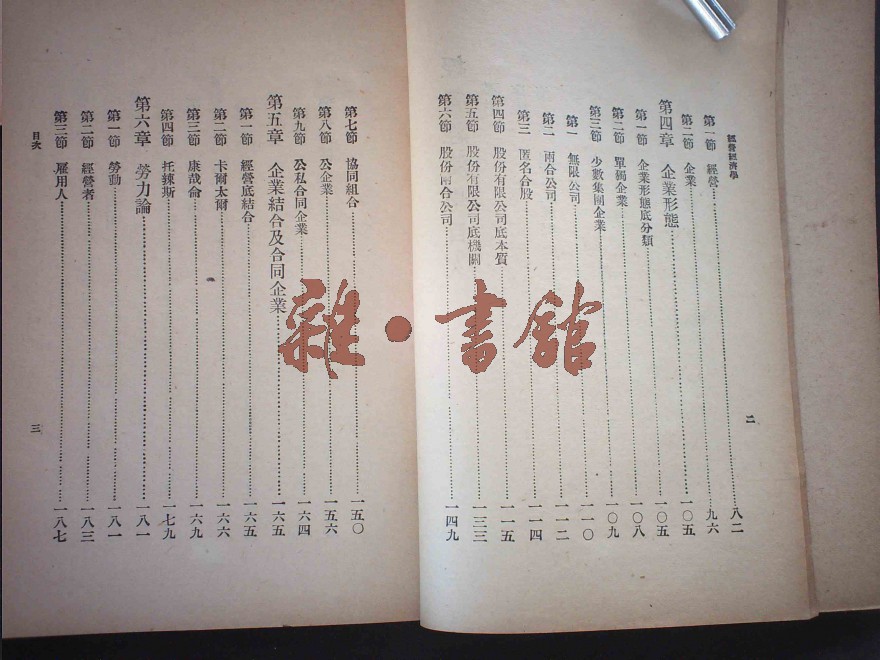 經營經濟學
二
第一節 經營……八二
第二節 企業……九六
第四章 企業形態……一〇五
第一節 企業形態底分類……一〇五
第二節 單獨企業……一〇八
第三節 少數集團企業……一〇九
第一 無限公司……一一〇
第二 兩合公司……一一二
第三 匿名合股……一一四
第四節 股份有限公司底本質……一一五
第五節 股份有限公司底機關……一三三
第六節 股份兩合公司……一四九
第七節 協同組合……一五〇
第八節 公企業……一五六
第九節 公私合同企業……一六四
第五章 企業結合及合同企業……一六五
第一節 經營底結合……一六五
第二節 卡爾太爾……一六六
第三節 康哉侖……一六九
第四節 托辣斯……一七九
第六章 勞力論……一八一
第一節 勞動……一八一
第二節 經營者……一八三
第三節 雇用人……一八七
目次
三
雜·書館